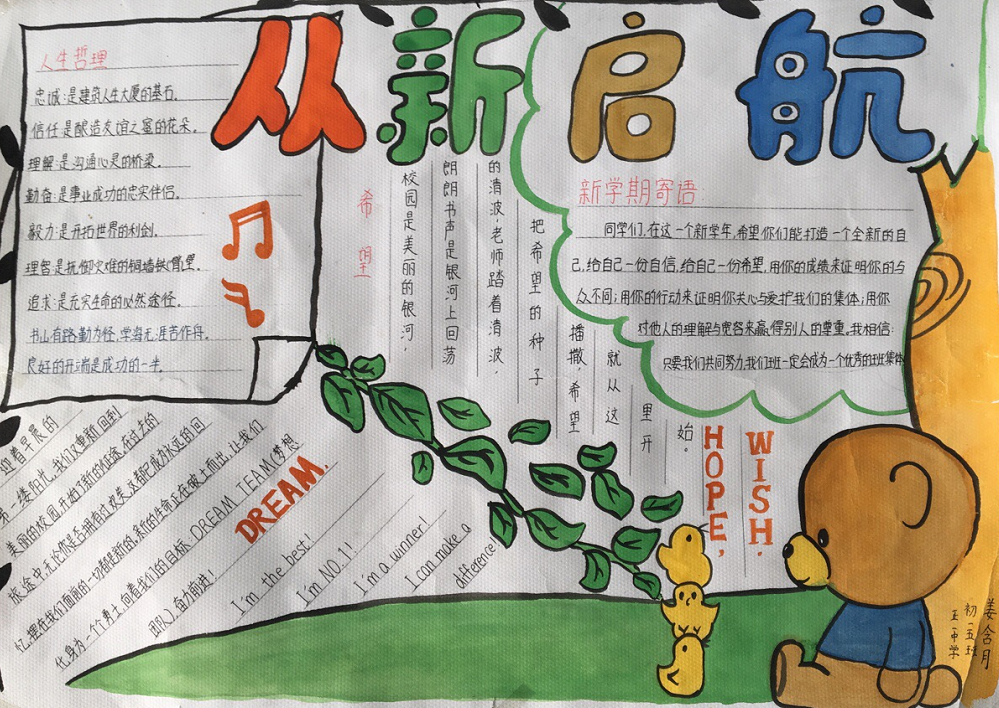 从新启航
人生哲理
忠诚:是建筑人生大厦的基石。
信任:是酿造友谊之蜜的花朵。
理解:是沟通心灵的桥梁。
勤奋:是事业成功的忠实伴侣。
毅力:是开拓世界的利剑。
理智:是抚御灾难的铜墙铁臂堡。
追求:是充实生命的必然途径。
书山有路勤为径,学海无涯苦作舟。
良好的开端是成功的一半。
希望
校园是美丽的银河,
朗朗书声是银河上回荡
的清波,老师踏着清波,
把希望的种子
播撒,希望
就从这
里开
始。
HOPE,
WISH.
新学期寄语:
同学们,在这一个新学年,希望你们能打造一个全新的自
己,给自己一份自信,给自己一份希望,用你的成绩来证明你的与
众不同;用你的行动来证明你关心与爱护我们的集体;用你
对他人的理解与宽容来赢得别人的尊重。我相信:
只要我们共同努力,我们班一定会成为一个优秀的班集体
迎着早晨的
第一缕阳光,我们又重新回到
美丽的校园,开始了新的征途,在过去的
旅途中,无论你是否拥有过欢笑,这都已成为永远的回
忆,摆在我们面前的一切都是新的,新的生命正在破土而出,让我们
化身为一个个勇士,向着我们的目标,DREAM TEAM(梦想
团队),奋力前进!
DREAM.
I'm the best!
I'm NO.1!
I'm a winner!
I can make a
difference!
姜含月
初一五班
五中学